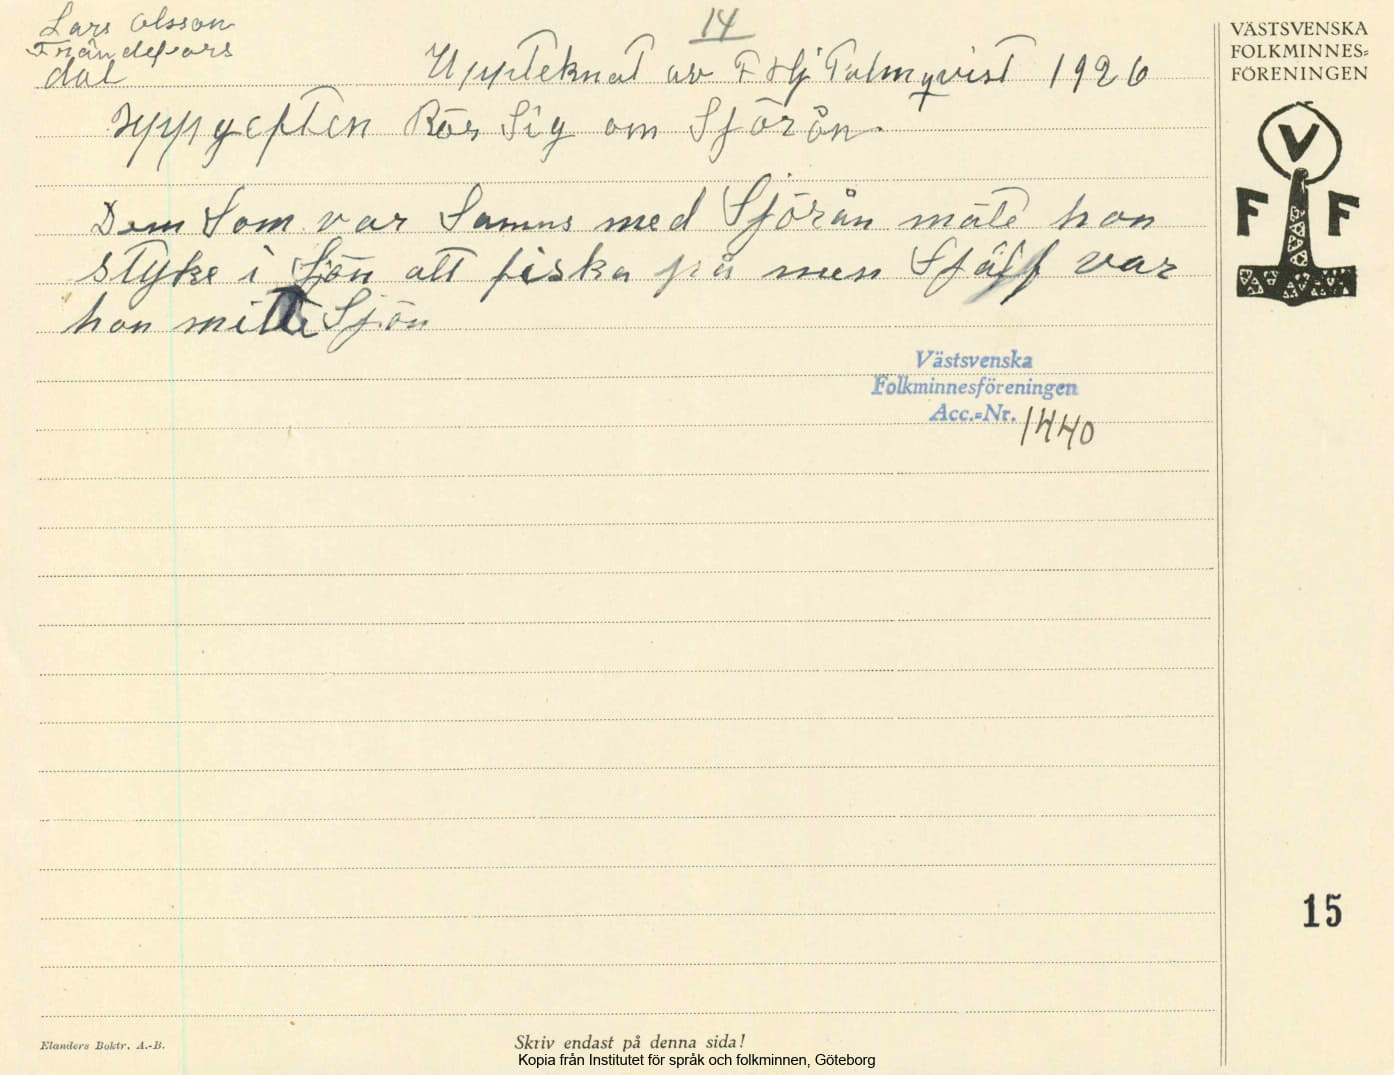 14
Lars Olsson
Frändefors
dal
Uppteknat av F Hj Palmqvist 1926
Uppgeften Rör Sig om Sjörån.
Dem Som var Samns med Sjörån mäte hon
Styke i Sjön att fiska på men Sjäff var
hon mitte Sjön
Västsvenska
Folkminnesföreningen
Acc.-Nr. 1440
VÄSTSVENSKA
FOLKMINNES-
FÖRENINGEN
V
F F
15
Elanders Boktr. A.-B.
Skriv endast på denna sida!
Kopia från Institutet för språk och folkminnen, Göteborg